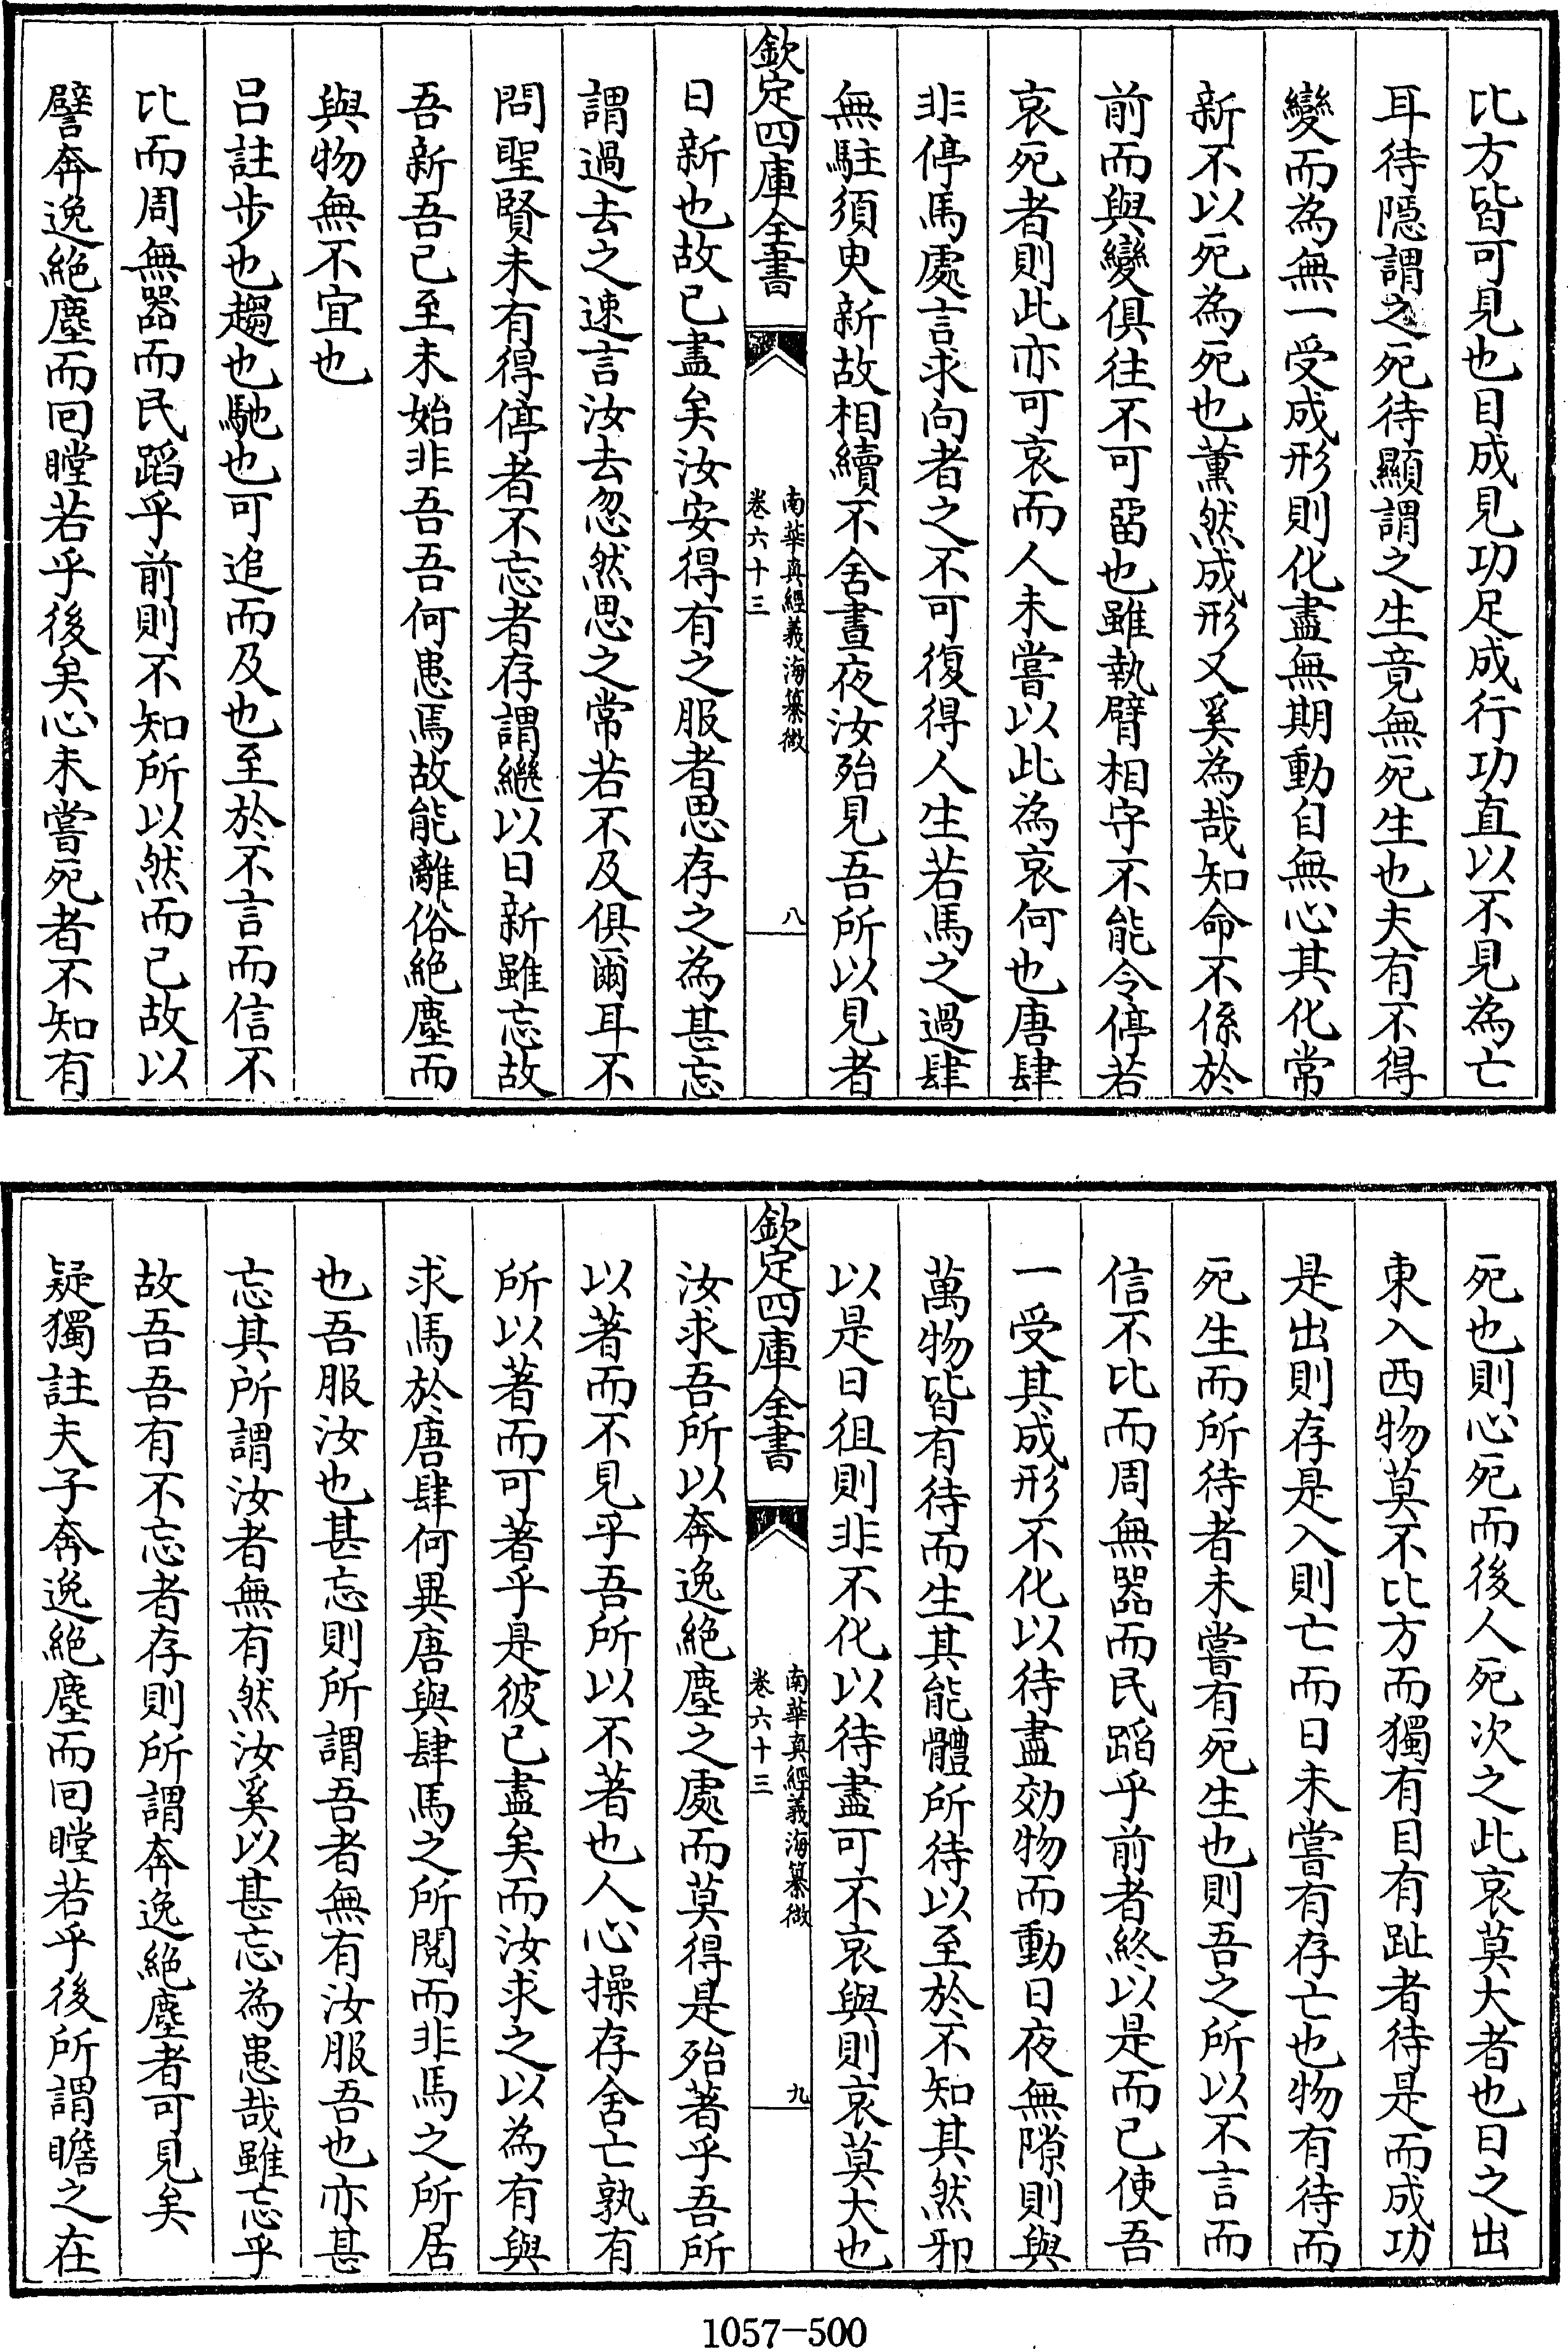 比方皆可見也目成見功足成行功直以不見為亡
耳待隱謂之死待顯謂之生竟無死生也夫有不得
變而為無一受成形則化盡無期動自無心其化常
新不以死為死也薰然成形又奚為哉知命不係於
前而與變俱往不可留也雖執臂相守不能令停若
哀死者則此亦可哀而人未嘗以此為哀何也唐肆
非停馬處言求向者之不可復得人生若馬之過肆
無駐須臾新故相續不舍晝夜汝殆見吾所以見者
欽定四庫全書
南華真經義海纂微
卷六十三
八
日新也故已盡矣汝安得有之服者思存之為甚忘
謂過去之速言汝去忽然思之常若不及俱爾耳不
問聖賢未有得停者不忘者存謂繼以日新雖忘故
吾新吾已至未始非吾吾何患焉故能離俗絕塵而
與物無不宜也
呂註步也趨也馳也可追而及也至於不言而信不
比而周無器而民蹈乎前則不知所以然而已故以
譬奔逸絕塵而回瞠若乎後矣心未嘗死者不知有
死也則心死而後人死次之此哀莫大者也日之出
東入西物莫不比方而獨有目有趾者待是而成功
是出則存是入則亡而日未嘗有存亡也物有待而
死生而所待者未嘗有死生也則吾之所以不言而
信不比而周無器而民蹈乎前者終以是而已使吾
一受其成形不化以待盡効物而動日夜無隙則與
萬物皆有待而生其能體所待以至於不知其然邪
以是日徂則非不化以待盡可不哀與則哀莫大也
欽定四庫全書
南華真經義海纂微
卷六十三
九
汝求吾所以奔逸絕塵之處而莫得是殆著乎吾所
以著而不見乎吾所以不著也人心操存舍亡孰有
所以著而可著乎是彼已盡矣而汝求之以為有與
求馬於唐肆何異唐與肆馬之所閱而非馬之所居
也吾服汝也甚忘則所謂吾者無有汝服吾也亦甚
忘其所謂汝者無有然汝奚以甚忘為患哉雖忘乎
故吾吾有不忘者存則所謂奔逸絕塵者可見矣
疑獨註夫子奔逸絕塵而回瞠若乎後所謂瞻之在
1057-500